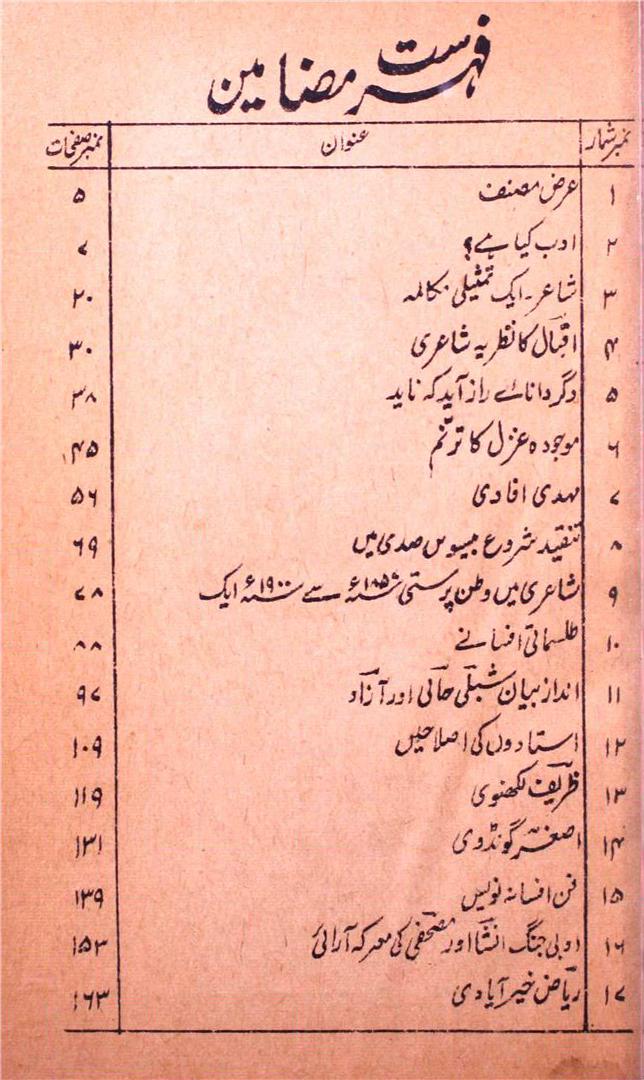 فہرست مضامین
نمبر شمار عنوان نمبر صفحات
۱ عرض مصنف ۵
۲ ادب کیا ہے؟ ۷
۳ شاعر۔ ایک تمثیلی مکالمہ ۲۰
۴ اقبال کا نظریہ شاعری ۳۰
۵ دگر دانائے راز آید کہ ناید ۳۸
۶ موجودہ غزل کا ترنّم ۴۵
۷ مہدی افادی ۵۶
۸ تنقید شروع بیسویں صدی میں ۶۹
۹ شاعری میں وطن پرستی ۱۸۵۷ء سے ۱۹۰۰ء ایک ۷۸
۱۰ طلسماتی افسانے ۸۸
۱۱ انداز بیان شبلی حالی اور آزاد ۹۷
۱۲ استادوں کی اصلاحیں ۱۰۹
۱۳ ظریف لکھنوی ۱۱۹
۱۴ اصغر گونڈوی ۱۳۱
۱۵ فن افسانہ نویس ۱۳۹
۱۶ ادبی جنگ انشا اور مصحفی کی معرکہ آرائی ۱۵۳
۱۷ ریاض خیرآبادی ۱۶۳